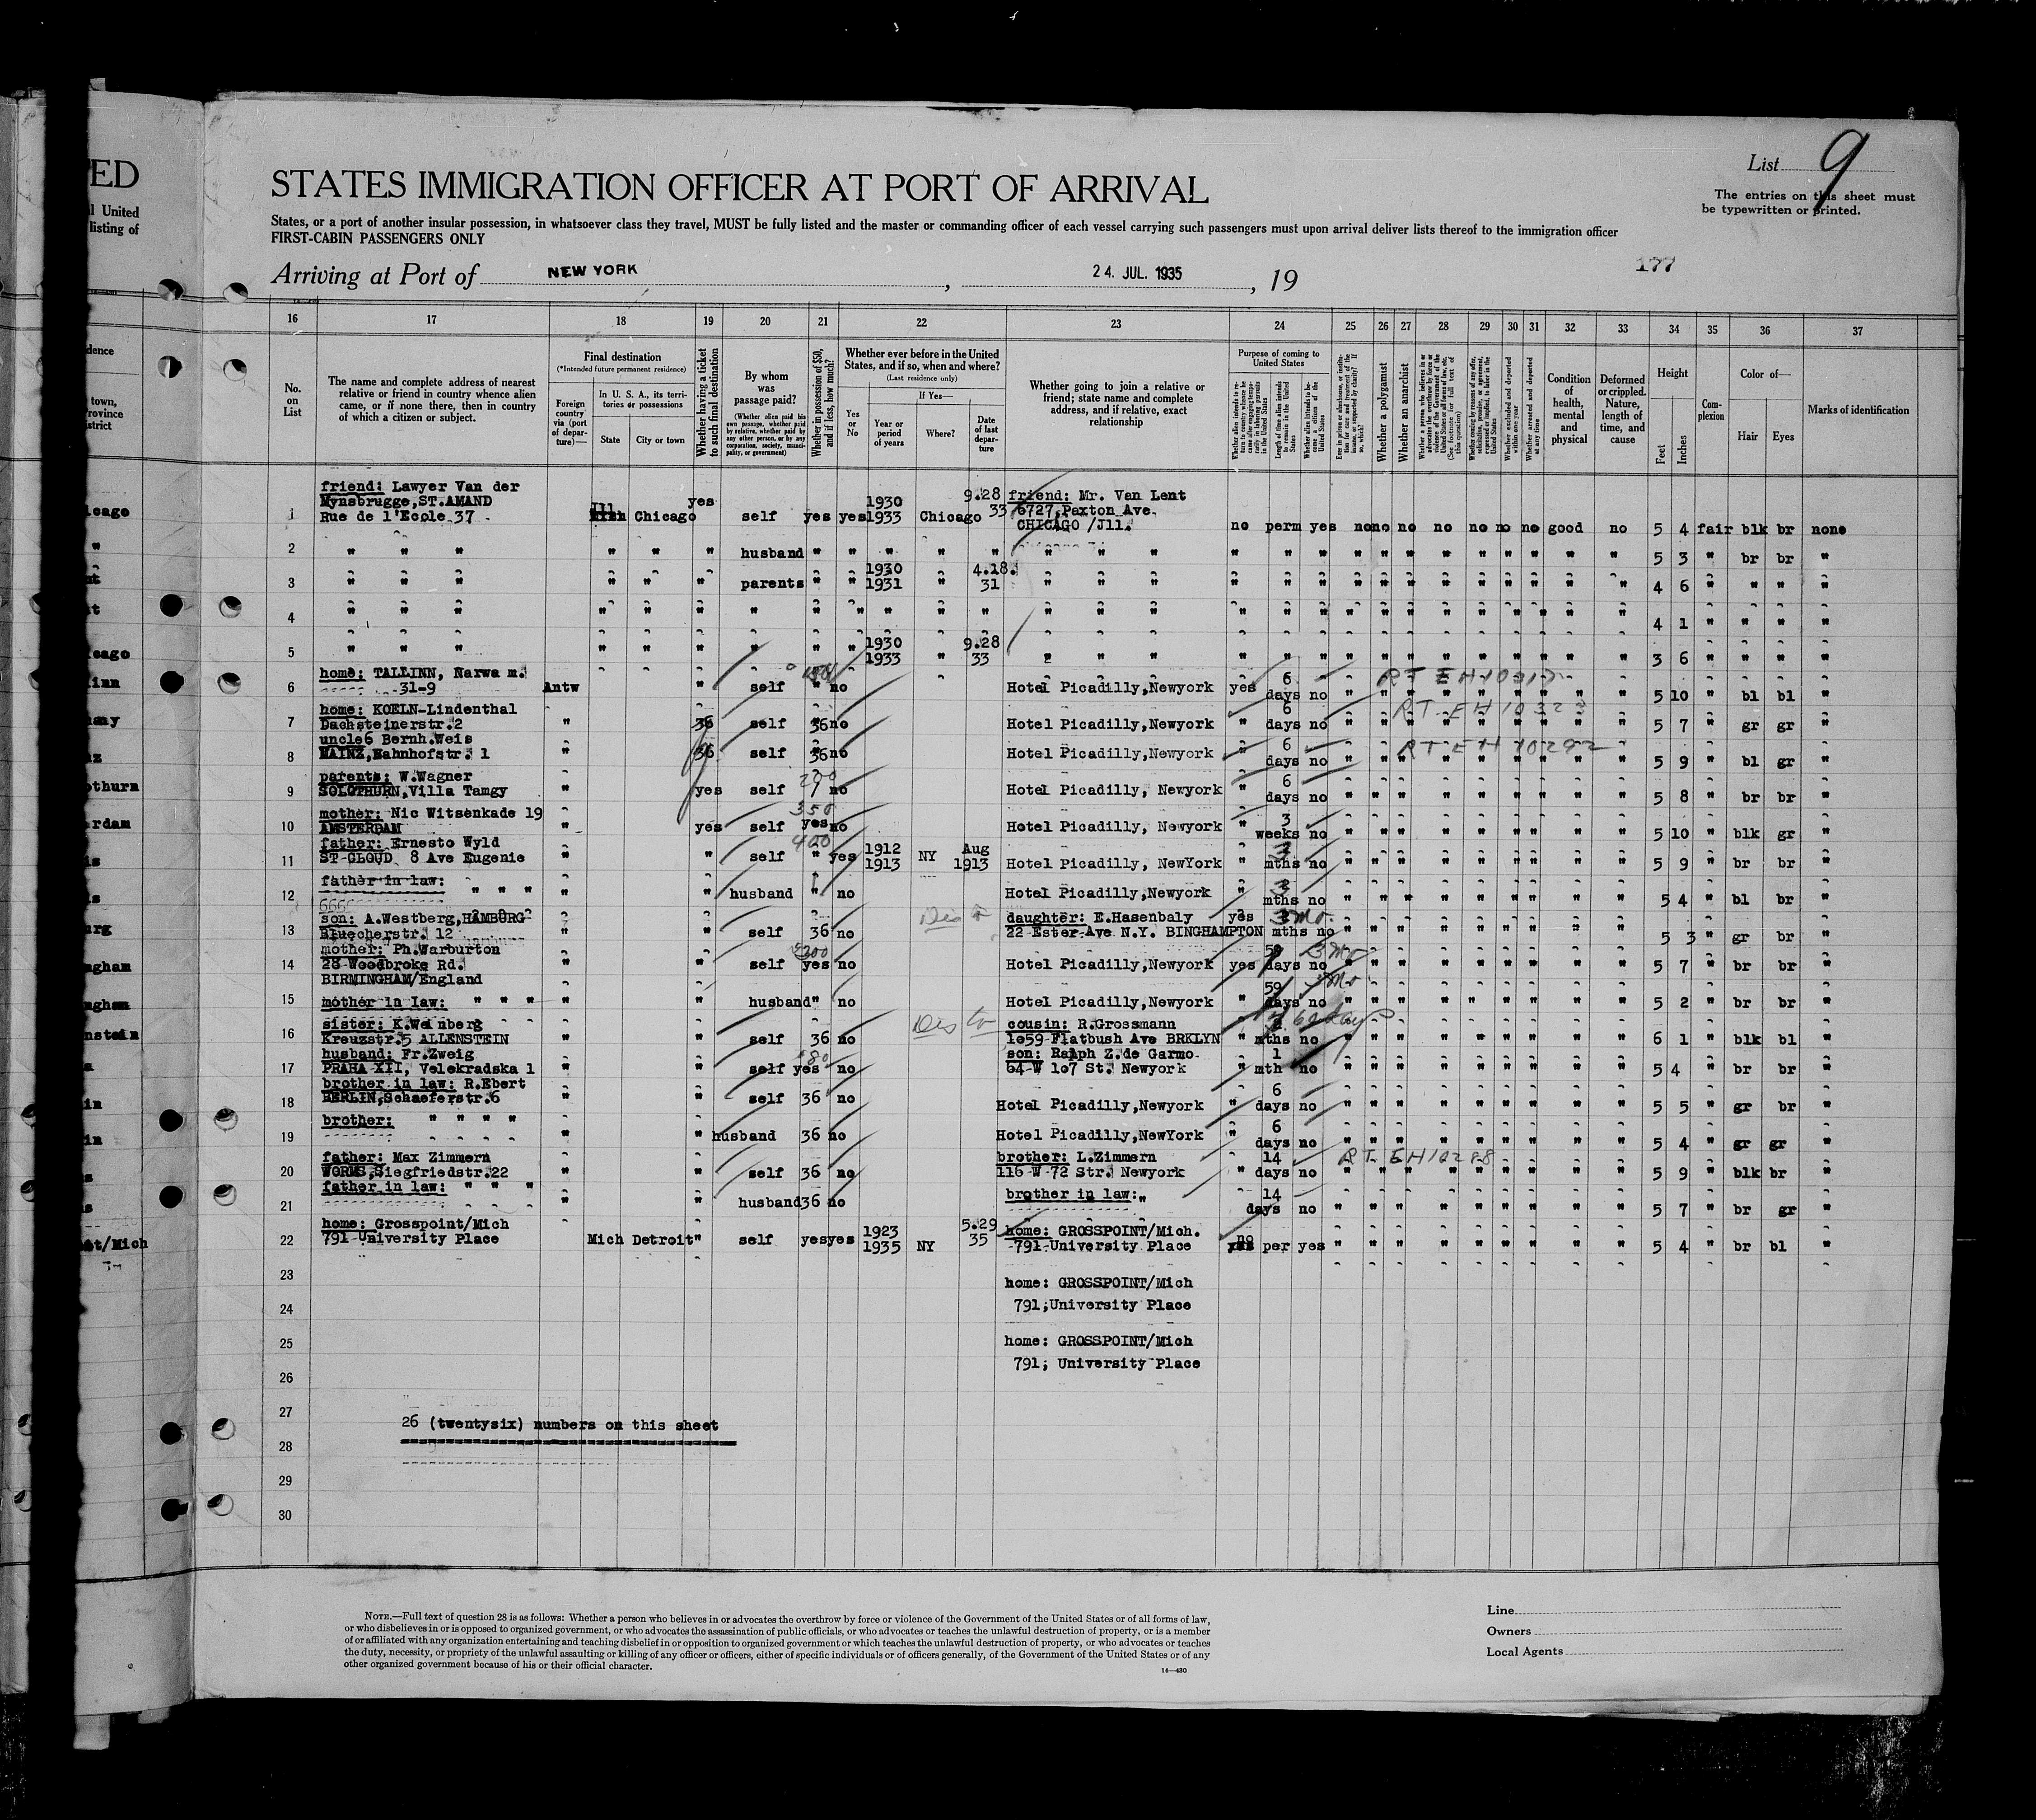 ED
l United
listing of
List 9
STATES IMMIGRATION OFFICER AT PORT OF ARRIVAL
The entries on this sheet must
be typewritten or printed.
States, or a port of another insular possession, in whatsoever class they travel, MUST be fully listed and the master or commanding officer of each vessel carrying such passengers must upon arrival deliver lists thereof to the immigration officer
FIRST-CABIN PASSENGERS ONLY
Arriving at Port of NEW YORK, 24. JUL. 1935, 19
177
16 17 18 19 20 21 22 23 24 25 26 27 28 29 30 31 32 33 34 35 36 37
No. on List
The name and complete address of nearest relative or friend in country whence alien came, or if none there, then in country of which a citizen or subject.
Final destination
(*Intended future permanent residence)
Foreign country via (port of departure)—
In U. S. A., its territories or possessions
State
City or town
Whether having a ticket to such final destination
By whom was passage paid?
(Whether alien paid his own passage, whether paid by relative, whether paid by any other person, or by any corporation, society, municipality, or government)
Whether in possession of $50, and if less, how much?
Whether ever before in the United States, and if so, when and where?
(Last residence only)
If Yes—
Yes or No
Year or period of years
Where?
Date of last departure
Whether going to join a relative or friend; state name and complete address, and if relative, exact relationship
Purpose of coming to United States
Whether a polygamist
Whether an anarchist
Condition of health, mental and physical
Deformed or crippled. Nature, length of time, and cause
Height
Feet
Inches
Complexion
Color of—
Hair
Eyes
Marks of identification
friend: Lawyer Van der
Mynsbrugge, ST.AMAND
1 Rue de l'Ecole 37 Ill Chicago yes self yes yes 1930 1933 Chicago 9.28 33 friend: Mr. Van Lent 6727, Paxton Ave. CHICAGO /Jll. no perm yes no no no no no no no good no 5 4 fair blk br none
2 " " " " " " husband " " " " " " " " " " " " " " " " " " " " " 5 3 " br br "
3 " " " " " " parents " " 1930 1931 " 4.18. 31 " " " " " " " " " " " " " " " 4 6 " " " "
4 " " " " " " " " " " " " " " " " " " " " " " " " " " " 4 1 " " " "
5 " " " " " " " " " 1930 1933 " 9.28 33 " " " " " " " " " " " " " " " 3 6 " " " "
home: TALLINN, Narwa m.
6 31-9 Antw " self " no Hotel Picadilly,Newyork yes 6 days no " " " " " " " " " 5 10 " bl bl "
home: KOELN-Lindenthal
7 Dachsteinerstr.2 " 36 self 36 no Hotel Picadilly,Newyork " 6 days no " " " " " " " " " 5 7 " gr gr "
RT EH 10323
uncle6 Bernh.Weis
8 MAINZ,Bahnhofstr. 1 " 36 self 36 no Hotel Picadilly,Newyork " 6 days no " " " " " " " " " 5 9 " bl gr "
RT EH 10292
parents: W.Wagner
9 SOLOTHURN,Villa Tamgy " yes self 200 no Hotel Picadilly, Newyork " 6 days no " " " " " " " " " 5 8 " br br "
mother: Nic Witsenkade 19
10 AMSTERDAM " yes self 350 yes no Hotel Picadilly, Newyork " 3 weeks no " " " " " " " " " 5 10 " blk gr "
father: Ernesto Wyld
11 ST CLOUD 8 Ave Eugenie " " self 400 " yes 1912 1913 NY Aug 1913 Hotel Picadilly, NewYork " 3 mths no " " " " " " " " " 5 9 " br br "
12 father in law: " " " " " husband " no Hotel Picadilly,Newyork " 3 mths no " " " " " " " " " 5 4 " bl br "
son: A.Westberg,HAMBURG
13 Bluecherstr. 12 " " self 36 no daughter: E.Hasenbaly 22 Ester Ave N.Y. BINGHAMPTON yes 3 mo. mths no " " " " " " " " " 5 3 " gr br "
mother: Ph.Warburton
14 28 Woodbroke Rd. " " self 300 yes no Hotel Picadilly,Newyork yes 59 days no 3 Mo " " " " " " " " " 5 7 " br br "
BIRMINGHAM/England
15 mother in law: " " " " " husband " no Hotel Picadilly,Newyork " 59 days no " " " " " " " " " 5 2 " br br "
sister: K.Weinberg
16 Kreuzstr.5 ALLENSTEIN " " self 36 no cousin: R.Grossmann 1o59 Flatbush Ave BRKLYN " 60 days mths no " " " " " " " " " 6 1 " blk bl "
husband: Fr.Zweig
17 PRAHA XII, Velekradska 1 " " self 80 yes no son: Ralph Z.de Garmo 64 W 1o7 St. Newyork " 1 mth no " " " " " " " " " 5 4 " br br "
brother in law: R.Ebert
18 BERLIN,Schaeferstr.6 " " self 36 no Hotel Picadilly,Newyork " 6 days no " " " " " " " " " 5 5 " gr br "
19 brother: " " " " " " husband 36 no Hotel Picadilly,NewYork " 6 days no " " " " " " " " " 5 4 " gr gr "
father: Max Zimmern
20 WORMS,Siegfriedstr.22 " " self 36 no brother: L.Zimmern 116 W 72 Str. Newyork " 14 days no " " " " " " " " " 5 9 " blk br "
21 father in law: " " " " " husband 36 no brother in law: " 14 days no " " " " " " " " " 5 7 " br gr "
home: Grosspoint/Mich
22 791 University Place Mich Detroit " self yes yes 1923 1935 NY 5.29 35 home: GROSSPOINT/Mich. 791 University Place no per yes " " " " " " " " " 5 4 " br bl "
23 home: GROSSPOINT/Mich
24 791;University Place
25 home: GROSSPOINT/Mich
791; University Place
26
27
26 (twentysix) numbers on this sheet
28
29
30
NOTE.—Full text of question 28 is as follows: Whether a person who believes in or advocates the overthrow by force or violence of the Government of the United States or of all forms of law,
or who disbelieves in or is opposed to organized government, or who advocates the assassination of public officials, or who advocates or teaches the unlawful destruction of property, or is a member
of or affiliated with any organization entertaining and teaching disbelief in or opposition to organized government or which teaches the unlawful destruction of property, or who advocates or teaches
the duty, necessity, or propriety of the unlawful assaulting or killing of any officer or officers, either of specific individuals or of officers generally, of the Government of the United States or of any
other organized government because of his or their official character.
14—430
Line
Owners
Local Agents